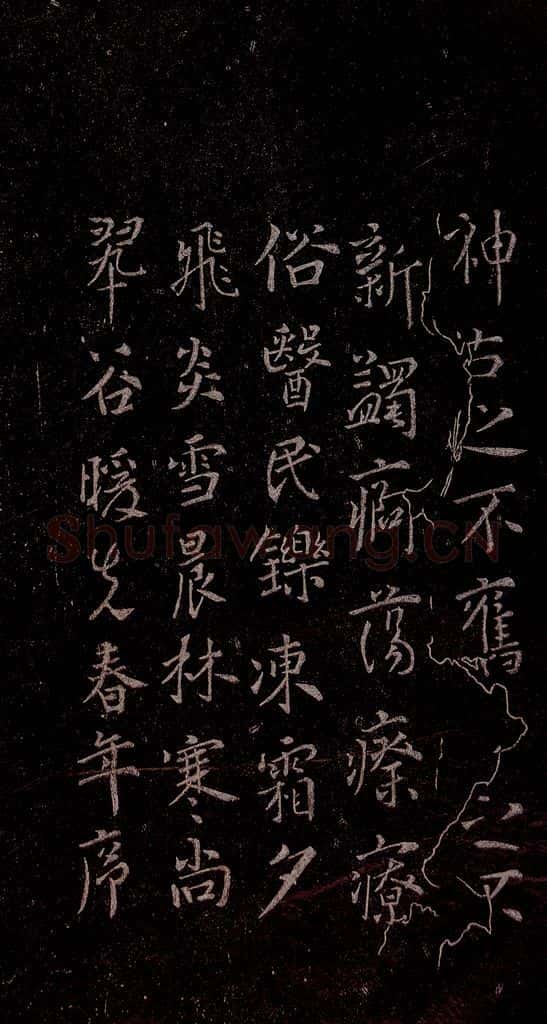 神沽之不舊之不
新蠲痾蕩瘵療
俗醫民鑠凍霜夕
飛炎雪晨林寒尚
翠谷暖先春年序
Shufawang.CN